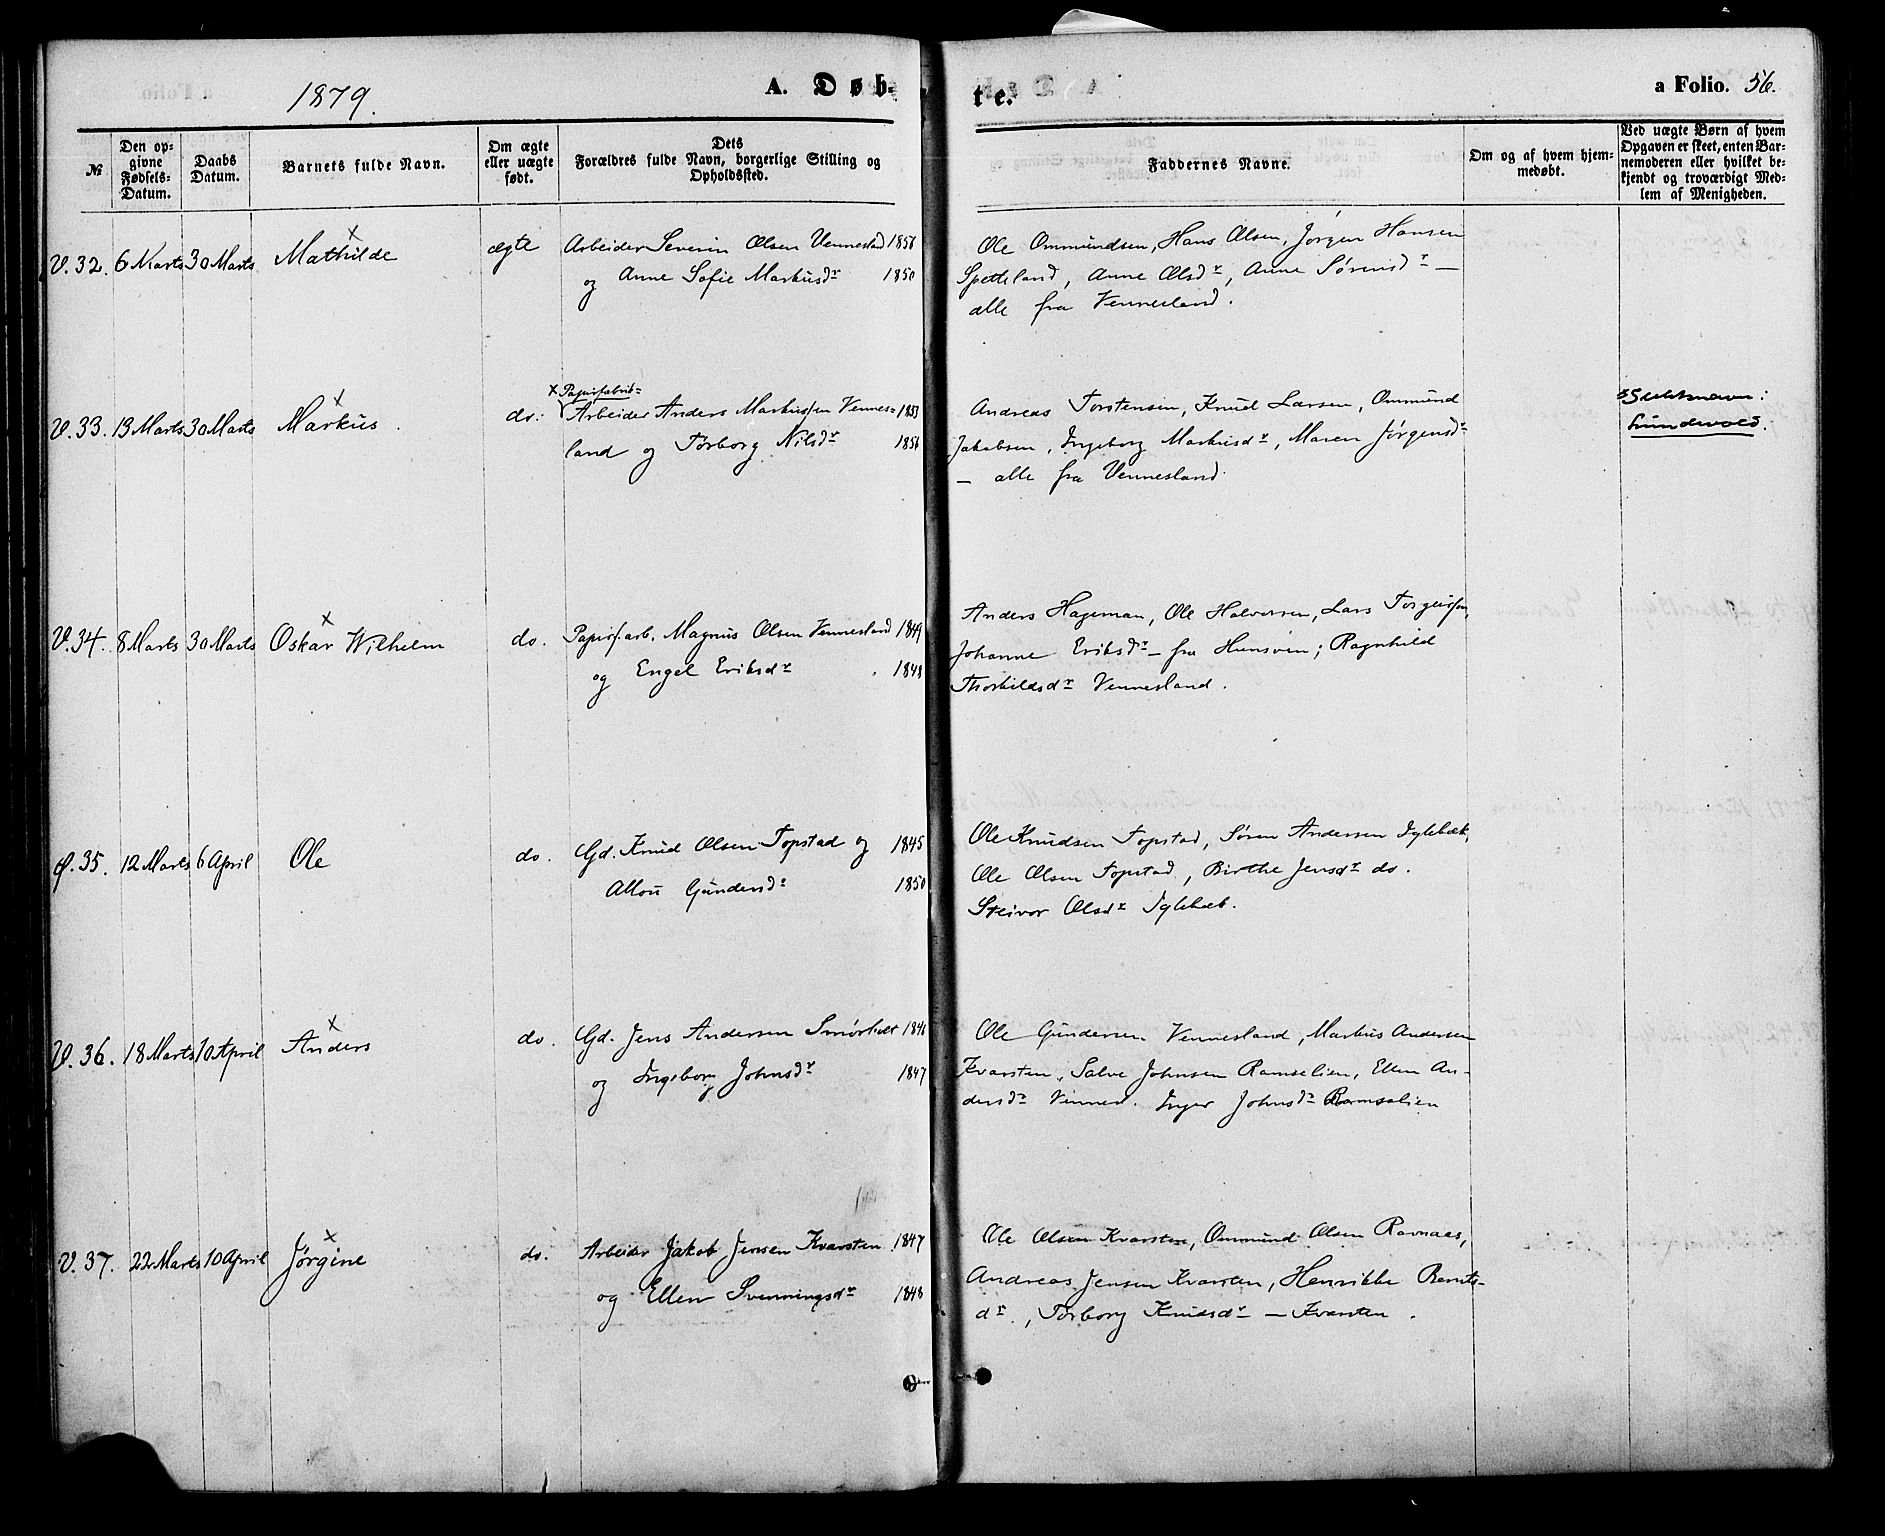 1879. A. Døb-
te. a Folio. 56.
№
Den op-
givne
Fødsels-
Datum.
Daabs
Datum.
Barnets fulde Navn.
Om ægte
eller uægte
født.
Dets
Forældres fulde Navn, borgerlige Stilling og
Opholdssted.
Faddernes Navne.
Om og af hvem hjem-
medøbt.
Ved uægte Børn af hvem
Opgaven er skeet, enten Bar-
nemoderen eller hvilket be-
kjendt og troværdigt Med-
lem af Menigheden.
V. 32. 6 Marts 30 Marts Mathilde ægte Arbeider Severin Olsen Vennesland 1856
og Anne Sofie Markusdr 1850
Ole Ommundsen, Hans Olsen, Jørgen Hansen
Spetteland, Anne Olsdr, Anne Sørensdr —
alle fra Vennesland.
x Papirfabrik=
V. 33. 13 Marts 30 Marts Markus. do: Arbeider Anders Markussen Vennes= 1853
land og Torborg Nilsdr 1856
Andreas Torstensen, Knud Larsen, Ommund
Jakobsen, Ingeborg Markusdr, Maren Jørgensdr
— alle fra Vennesland
Slektsnavn:
Lundevold.
V. 34. 8 Marts 30 Marts Oskar Wilhelm do. Papirf.arb. Magnus Olsen Vennesland 1849
og Engel Eriksdr 1848
Anders Hageman, Ole Halvorsen, Lars Torgersen,
Johanne Eriksdr — fra Hunsøen; Ragnhild
Thorkildsdr Vennesland.
Ø. 35. 12 Marts 6 April Ole do. Gd. Knud Olsen Topstad og 1845
Gundersdr 1850
Ole Knudsen Topstad, Søren Andersen Iglebæk,
Ole Olsen Topstad, Birthe Jensdr do.
Steivor Olsdr Iglebæk.
V. 36. 18 Marts 10 April Anders do. Gd. Jens Andersen 1846
og Ingeborg Johnsdr 1847
Ole Gundersen Vennesland, Markus Andersen
Kvarsten, Salve Johnsen Ramselien, Ellen An-
dersdr Vennesl. Inger Johnsdr Ramsalien
V. 37. 22 Marts 10 April Jørgine do. Arbeider Jakob Jensen Kvarsten 1847
og Ellen Svenningsdr 1848
Ole Olsen Kvarsten, Ommund Olsen Ravnaas,
Andreas Jensen Kvarsten, Henrikke Bents-
dr., Torborg Knudsdr — Kvarsten.